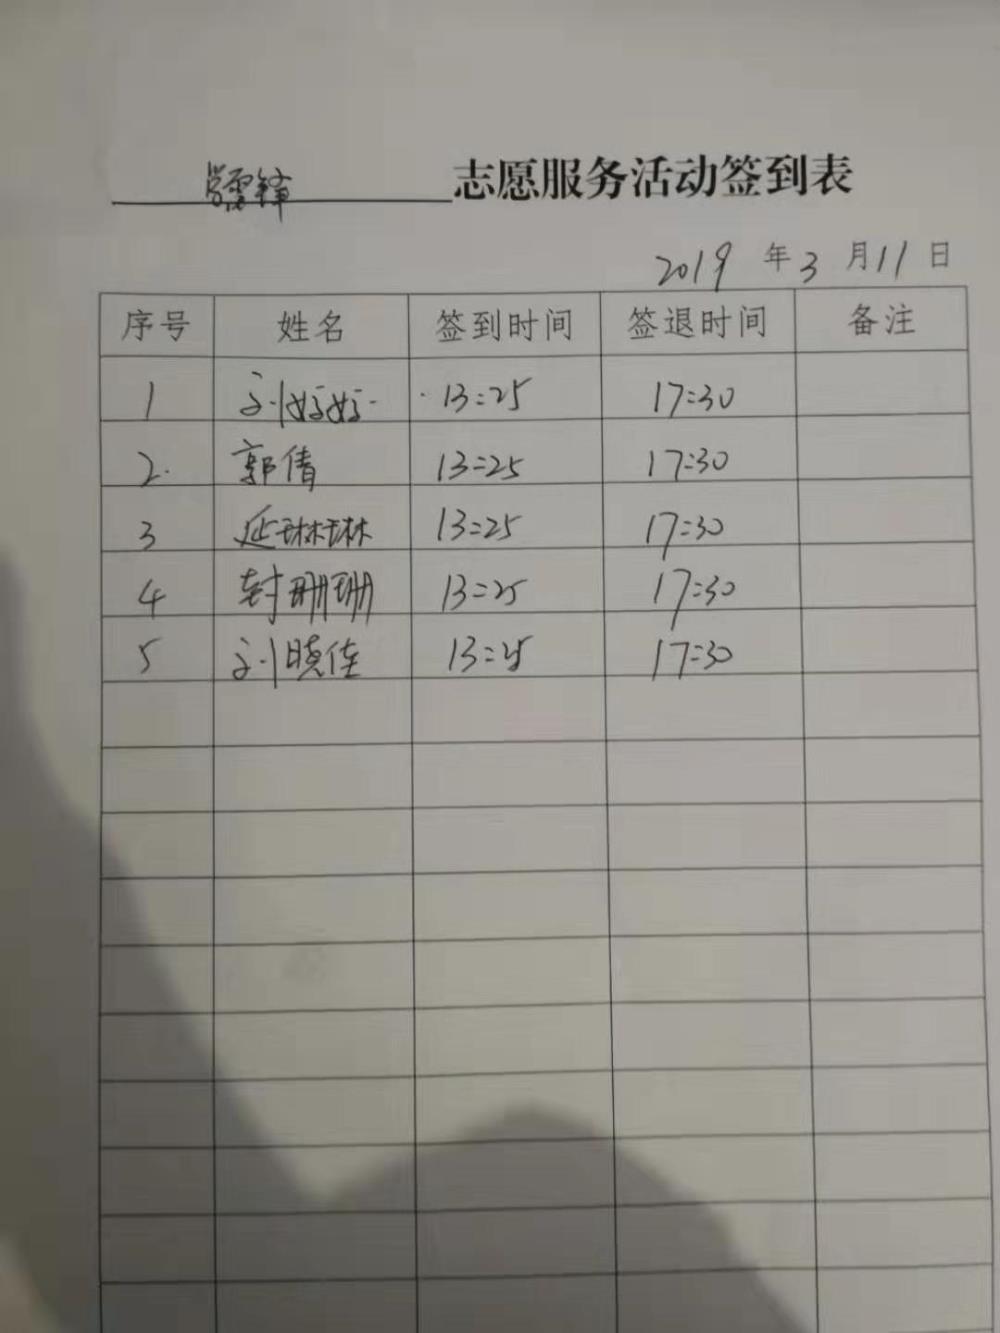 学雷锋志愿服务活动签到表
2019年3月11日
序号 姓名 签到时间 签退时间 备注
1 刘好好 13:25 17:30
2. 郭倩 13:25 17:30
3 延琳琳 13:25 17:30
4 封珊珊 13:25 17:30
5 刘晓佳 13:25 17:30